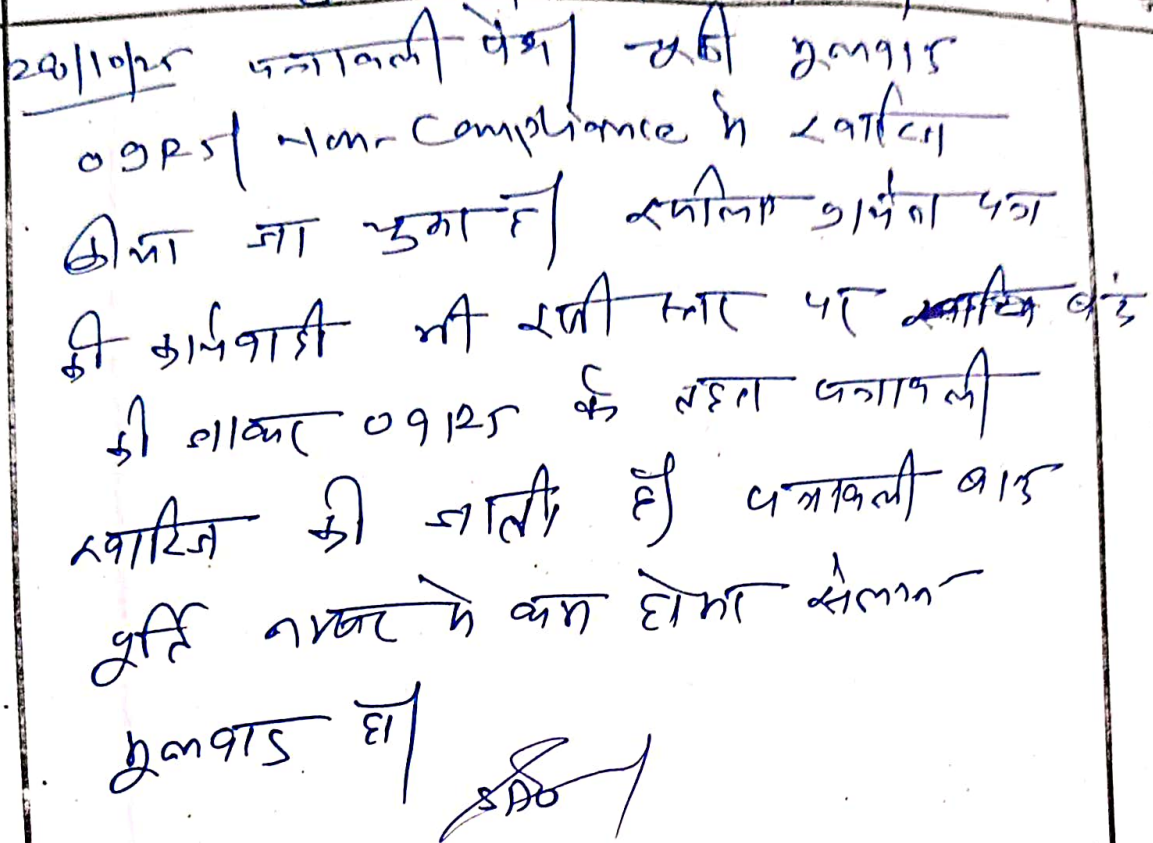 28/10/25 पत्रावली पेश। चूकी मूलवाद
09R5। Non-Compliance मे खारिज
कीया जा चुका है। इसलिए प्रार्थना पत्र
की कार्यवाही भी इसी स्तर पर बंद
की जाकर 09R5 के तहत पत्रावली
खारिज की जाती है। पत्रावली बाद
पूर्ति नम्बर से कम होकर संलग्न
मूलवाद हो।